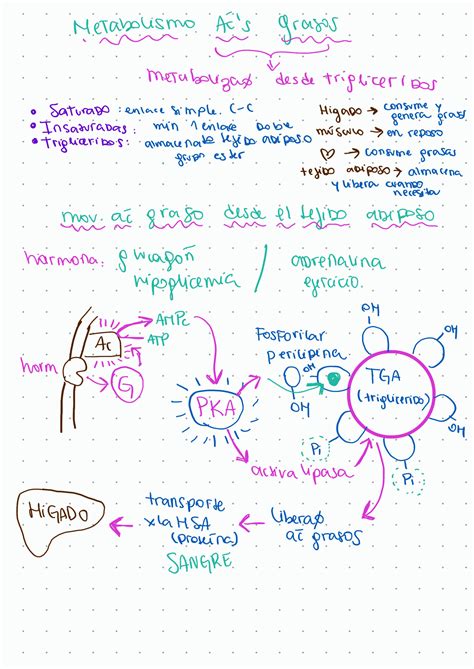 Metabolismo Ac's grasos
metabolizas desde trigliceridos
• Saturado: enlace simple. C-C
• Insaturadas: min 1 enlace doble
• Trigliceridos: almacena tejido adiposo
grupo ester
Higado → consume y
genera grasas
músculo → en reposo
♡ → consume grasas
tejido adiposo → almacena
y libera cuando
necesita
mov. ac graso desde el tejido adiposo
hormona: glucagón / adrenalina
hipoglicemia ejercicio.
AMPc
ATP
Ac
horm
G
PKA
Fosforilar
perilipina
OH
OH
OH
OH
TGA
(triglicerido)
Pi
Pi
activa lipasa
HIGADO
transporte
x la HSA
(proteína)
SANGRE
libera
ac grasos